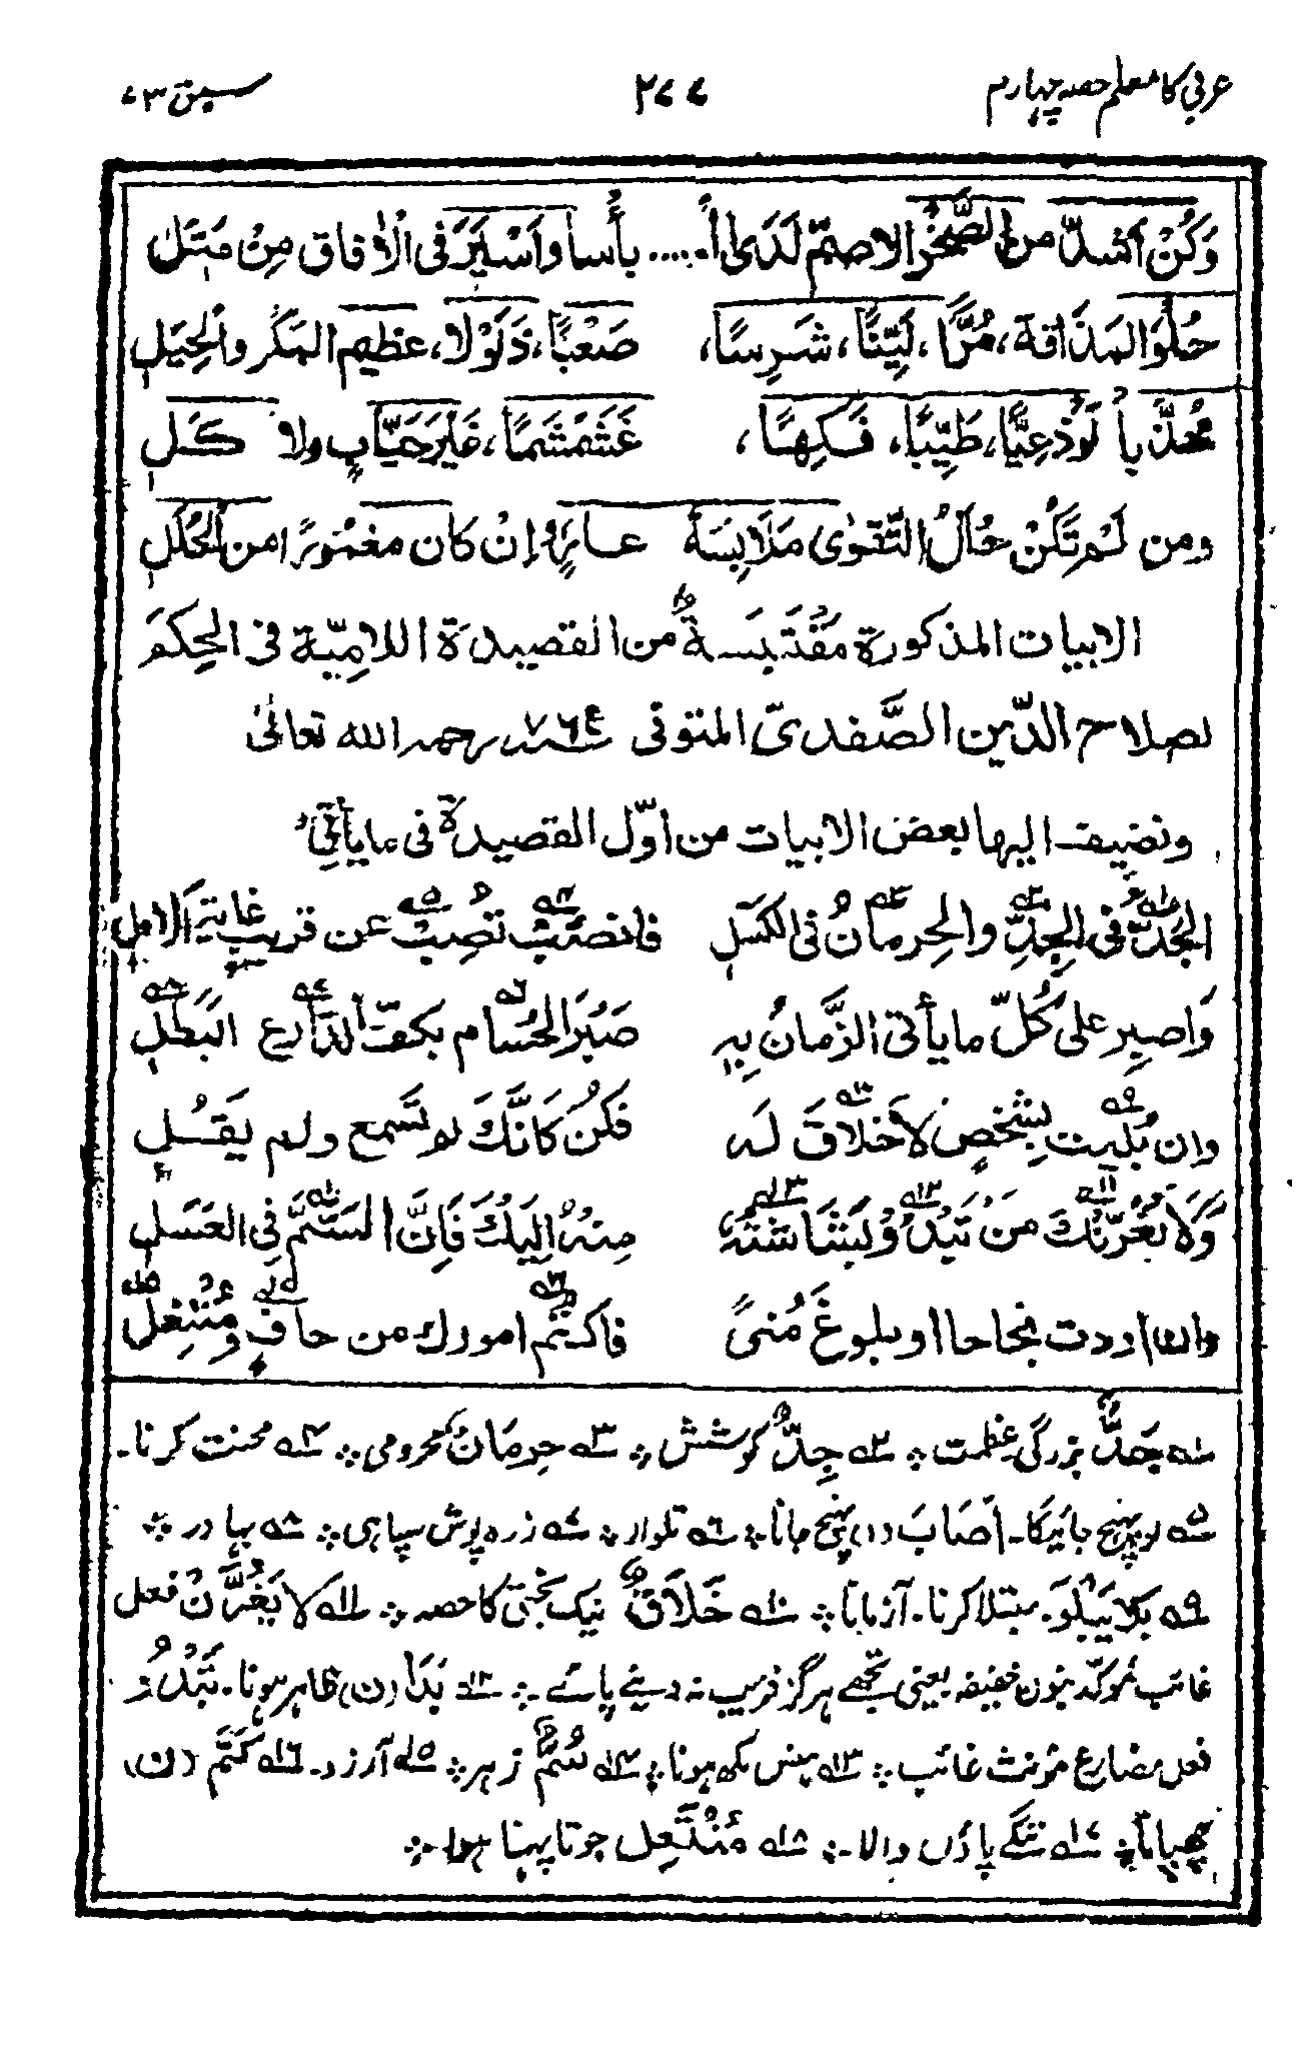 عربی کا معلم حصہ چہارم ۲۷۷ سبق ۷۳
وَكُنْ أَشَدَّ من الصَّخْرِ الاصمّ لَدَى ال..... بأْسا وَاَسْيَرَ فى الْاٰفاق مِنْ مَثَلِ
حُلْوَ المَذَاقة، مُرًّا، لَيِّنًا، شَرِسًا، صَعْبًا، ذَلُوْلا، عظيم المَكْر والْحِيَلِ
مُهذَّبا لَوْذَعِيًّا، طَيِّبًا، فَكِهًا، غَشَمْشَمًا، غَيْرَ هَيَّابٍ ولا كَلِ
ومن لَمْ تَكُنْ حُلَلُ التَّقْوٰى مَلَابِسَهٗ عارٍ وإنْ كان مغمُورًا من الْحُلَلِ
الابيات المذكورة مُقْتَبَسةٌ من القصيدة اللامِيّة فى الحِكَمِ
لصلاح الدّين الصَّفَدىّ المتوفى سنہ ۷۶۴ رحمہ اللہ تعالیٰ
ونضيف اليها بعض الابيات من اوّل القصيدة فى ما يأتِىْ
الجَدُّ فى الجِدِّ والحِرمانُ فى الكسَلِ فانصَبْ تُصِبْ عن قريبٍ غايةَ الامل
وَاصبِر على كُلّ ما يأتى الزَّمانُ بِهٖ صَبْرَ الحُسَام بكفّ الدَّارِعِ البَطَلِ
وان بُليت بِشَخصٍ لاخَلاقَ لَه فكُنْ كَانَّكَ لم تَسْمع ولم يَقُلِ
وَلَا يَغُرَّنْكَ مَنْ تَبْدُوْ بَشَاشَتُهٗ مِنهُ اِلَيْكَ فَإِنَّ السَّمَّ فِى العَسَلِ
وان اردت نجاحا او بلوغَ مُنىً فاكتُم امورك من حافٍ ومُنْتَعِل
۱؎ جَدٌّ بزرگی عظمت ۲؎ جِدٌّ کوشش ۳؎ حِرمَانٌ محرومی ۴؎ محنت کرنا۔
۵؎ تو پہنچ جائیگا۔ اَصَابَ (۱) پہنچ جانا ۶؎ تلوار ۷؎ زرہ پوش سپاہی ۸؎ بہادر
۹؎ بَلَا یَبْلُوْ۔ مبتلا کرنا۔ آزمانا ۱۰؎ خَلَاقٌ نیک بختی کا حصہ ۱۱؎ لَا یَغُرَّنْ فعل
غائب مُوکّد بنون خفیفہ یعنی تجھے ہرگز فریب نہ دینے پائے ۱۲؎ بَدَا (ن) ظاہر ہونا۔ تَبْدُوْ
فعل مضارع مؤنث غائب ۱۳؎ ہنس مکھ ہونا ۱۴؎ سُمٌّ زہر ۱۵؎ آرزو۔ ۱۶؎ کَتَمَ (ن)
چھپانا ۱۷؎ ننگے پاؤں والا۔ ۱۸؎ مُنْتَعِل جوتا پہنا ہوا۔